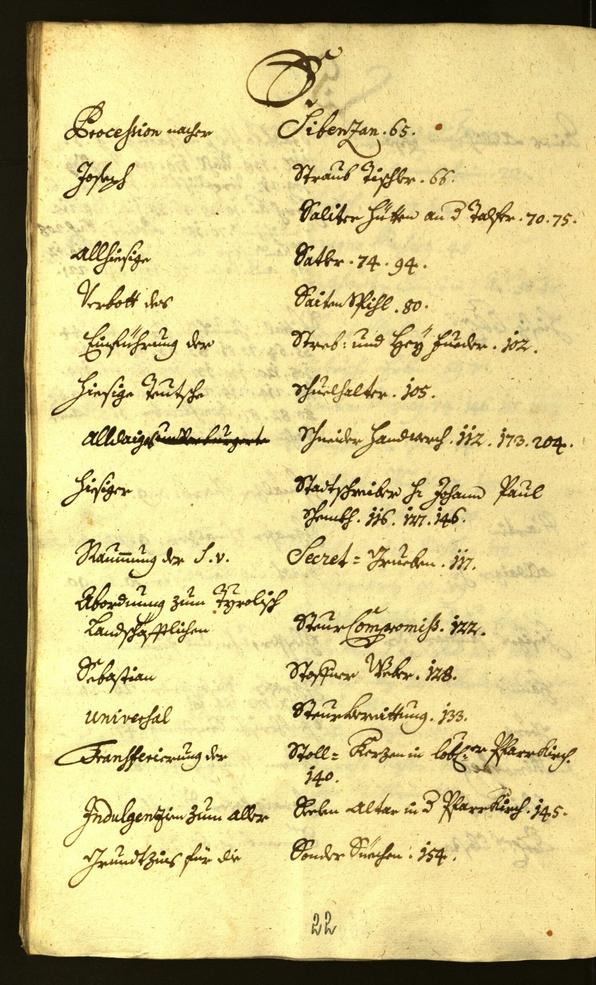 S
Procession nacher Sibenzan. 65.
Joseph Straub Tischler. 66.
Saliter Hütten an d Talfer. 70. 75.
Allhiesige Satler. 74. 94.
Verbott des Saiten Spihl. 80.
Einführung der Streb: und Hey Fueder. 102.
Hiesige Teutsche Schuelhalter. 105.
Alldaige Schneider Handwerch. 112. 173. 204.
Hiesiger Stadtschreiber H: Johann Paul
116. 127. 146.
Raumung der S. v. Secret= Grueben. 117.
Abordnung zum Tyrolisch
Landschafftlichen Steur Compromiss. 122.
Sebastian Weber. 128.
Universal Steurbereittung. 133.
Transferierung der Stoll= Kerzen in Pfarrkirch.
140.
Indulgenzien zum aller Seelen Altar in d Pfarrkirch. 145.
Grundtzins für die Sonder Siechen. 154.
22